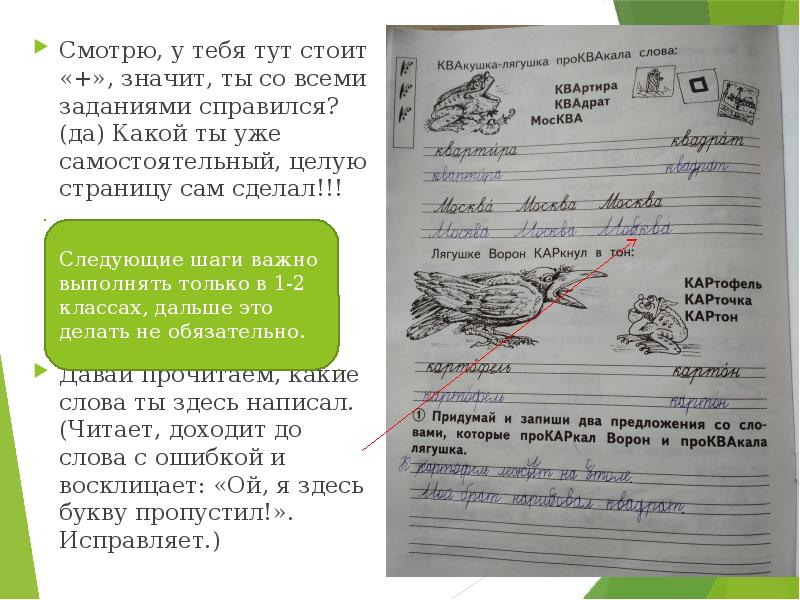 Смотрю, у тебя тут стоит
«+», значит, ты со всеми
заданиями справился?
(да) Какой ты уже
самостоятельный, целую
страницу сам сделал!!!
Следующие шаги важно
выполнять только в 1-2
классах, дальше это
делать не обязательно.
Давай прочитаем, какие
слова ты здесь написал.
(Читает, доходит до
слова с ошибкой и
восклицает: «Ой, я здесь
букву пропустил!».
Исправляет.)
КВАкушка-лягушка проКВАкала слова:
КВАртира
КВАдрат
МосКВА
кварти́ра квадра́т
квартира квадрат
Москва́ Москва Москва
Москва Москва Москва
Лягушке Ворон КАРкнул в тон:
КАРтофель
КАРточка
КАРтон
карто́фель карто́н
картофель картон
① Придумай и запиши два предложения со сло-
вами, которые проКАРкал Ворон и проКВАкала
лягушка.
Картофель лежит на столе.
Мой брат нарисовал квадрат.